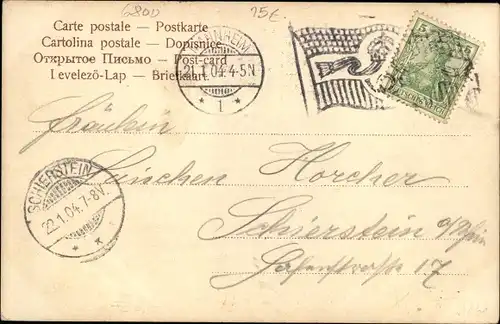 6800
25€
Carte postale — Postkarte
Cartolina postale — Dopisnice
Открытое Письмо — Post-card
Levelező-Lap — Briefkaart
MANNHEIM
21.1.04.4-5N
1
5
Fräulein
Horcher
Schierstein a/Rhein
Hafenstraße 17
SCHIERSTEIN
22.1.04.7-8V.